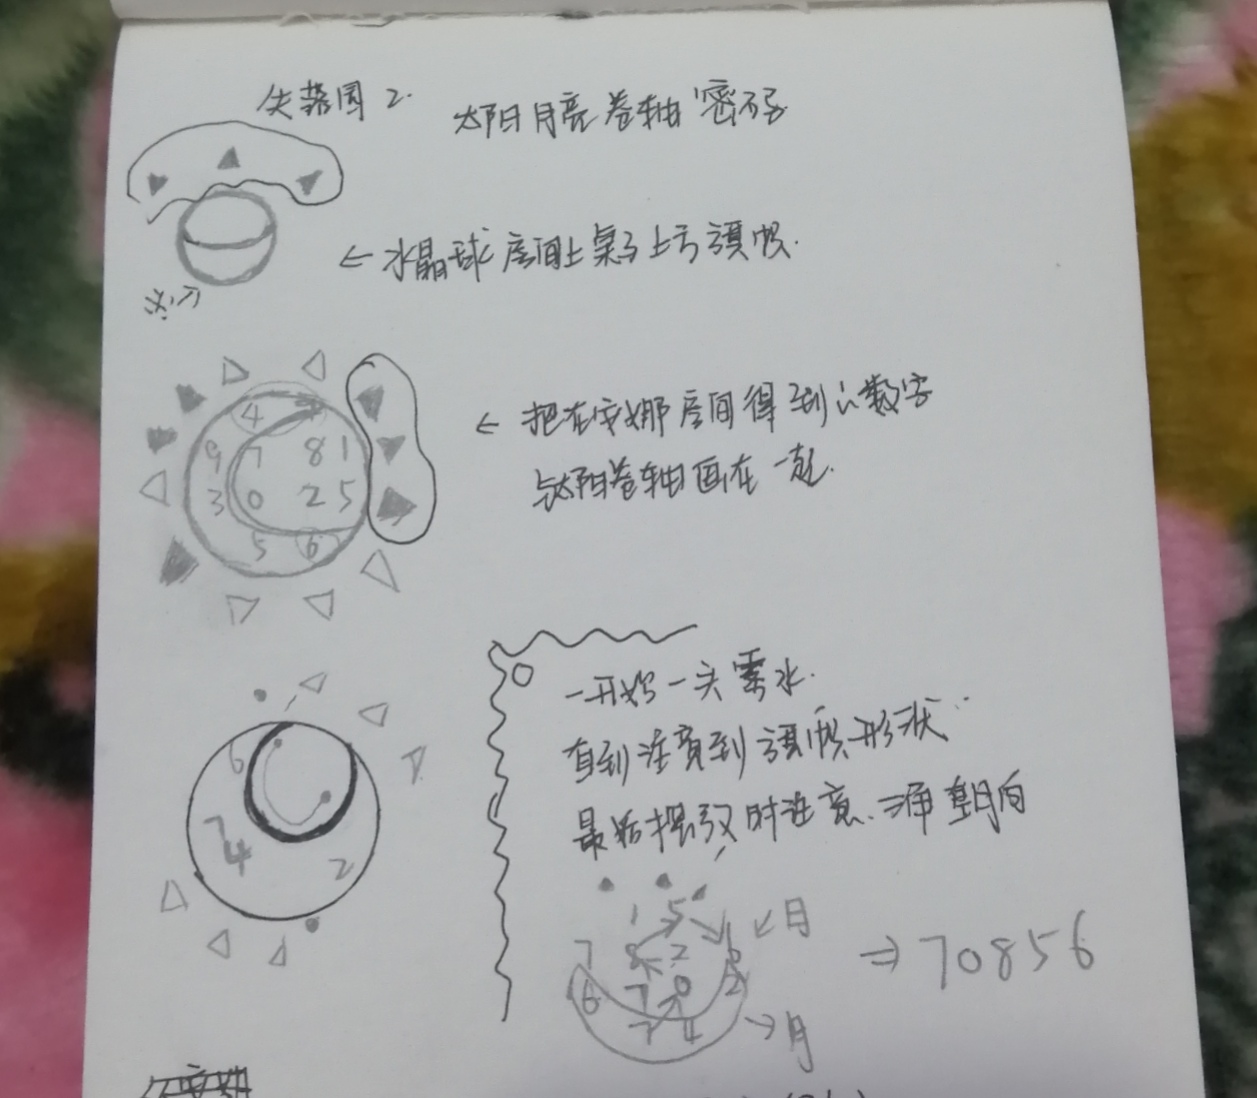 失落园2.
太阳月亮卷轴密码
←水晶球房间上桌子上方旗帜.
4
9 7 8 1
3 0 2 5
5 6
←把在安娜房间得到的数字
与太阳卷轴画在一起.
6
7
4
2
一开始一头雾水.
直到注意到旗帜形状
最后提取时注意.三角朝向
1 5
7 8 2 6
6 7 0 2
7 4
↙日
→月
⇒70856